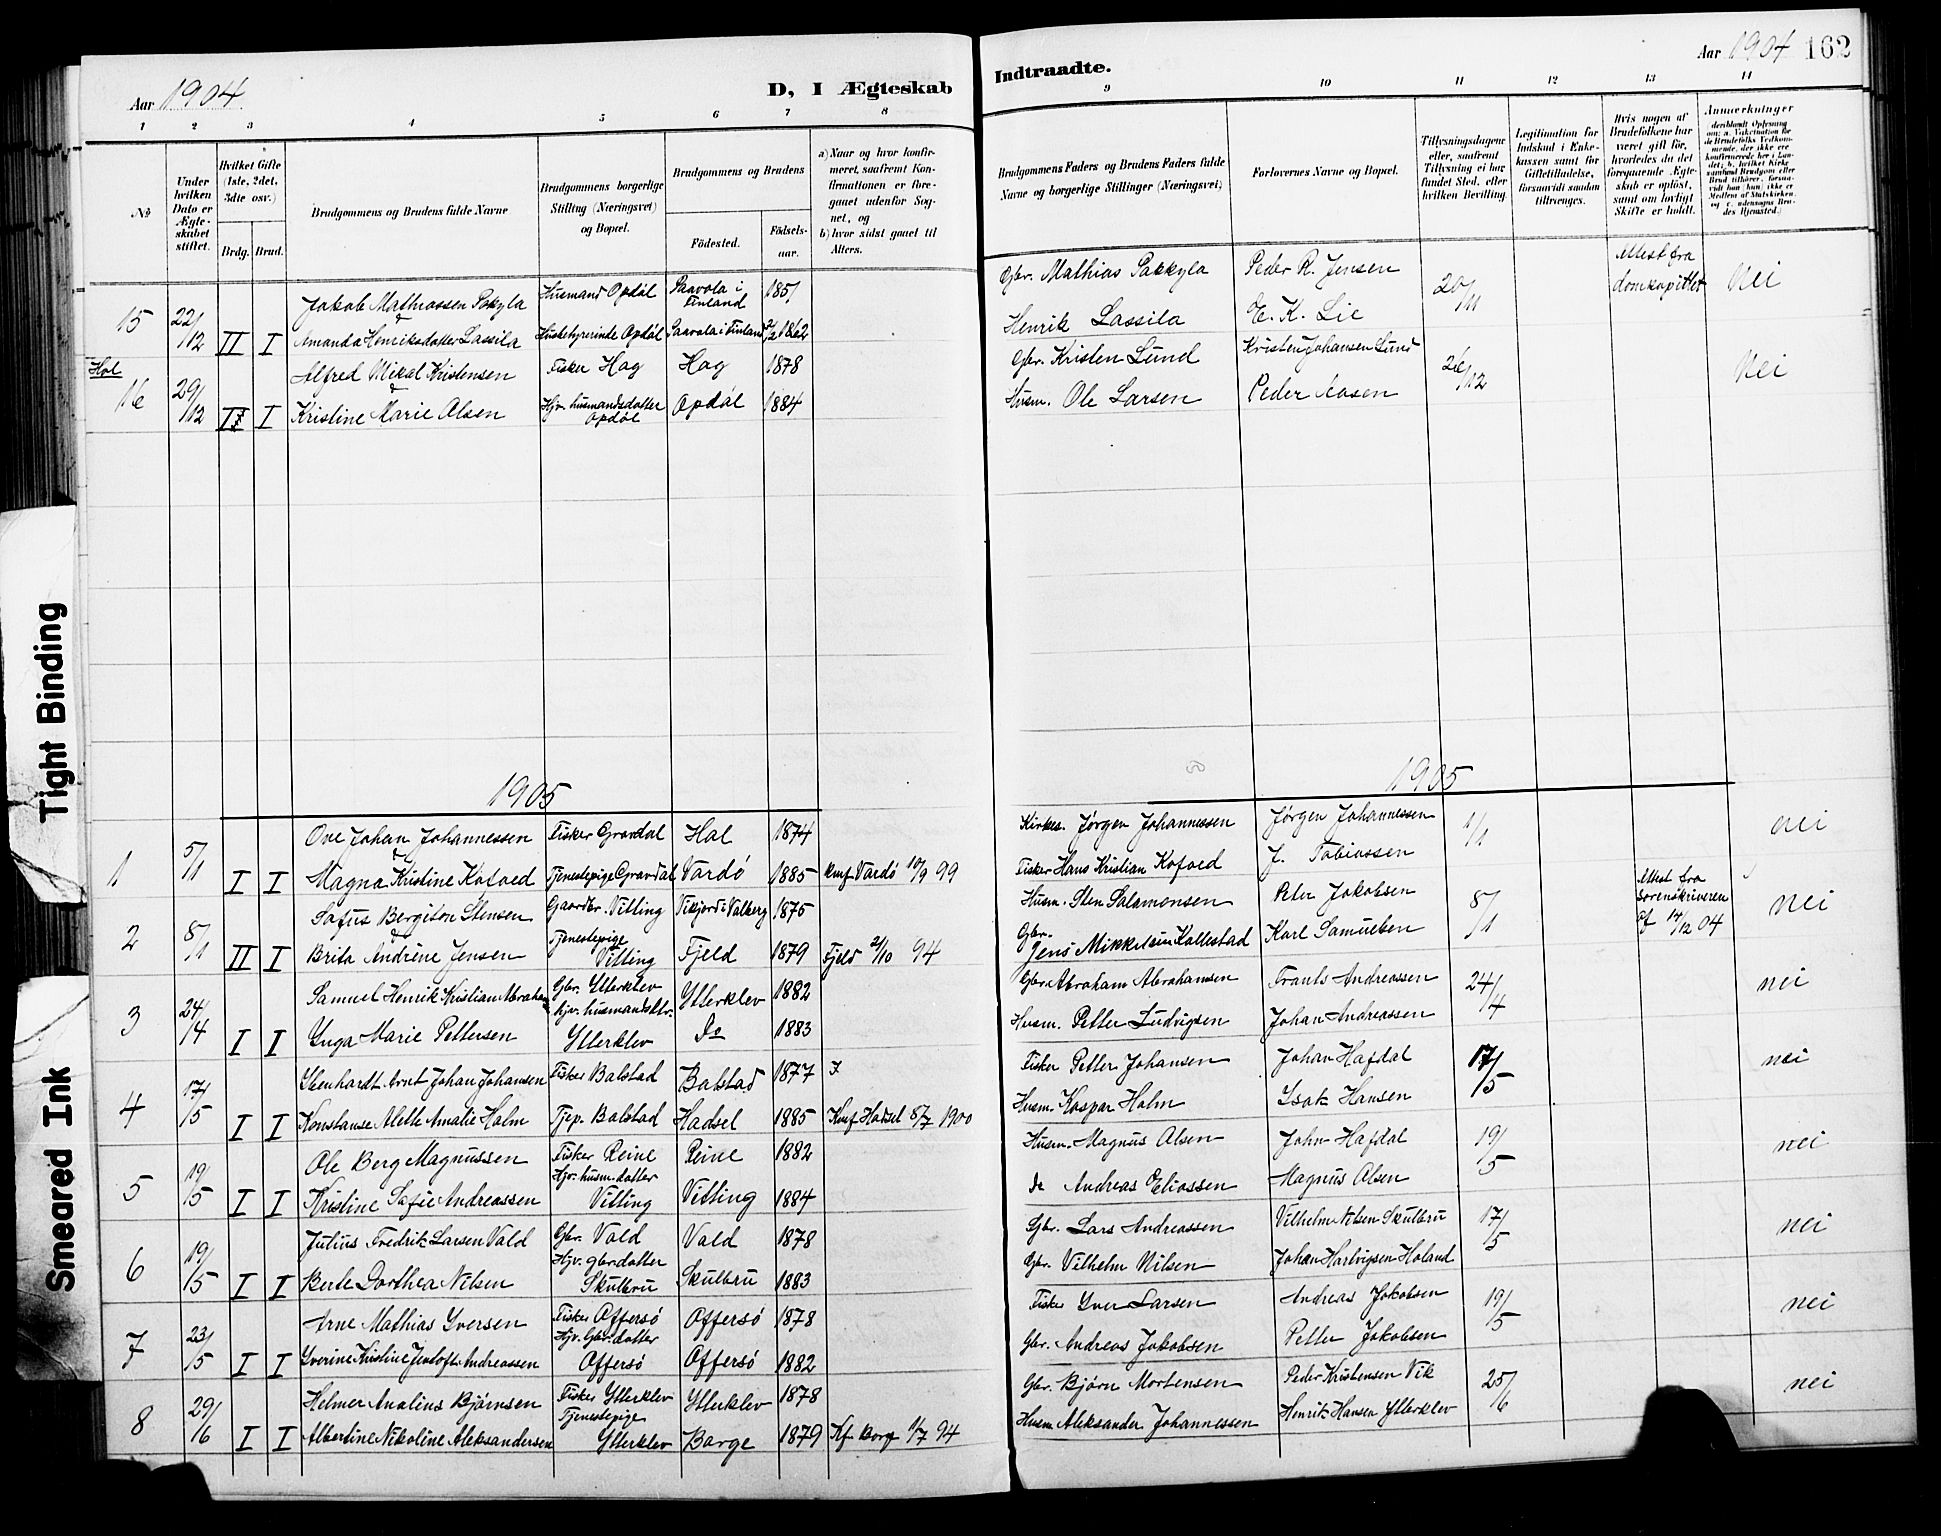 Aar 1904.
D, I Ægteskab
Indtraadte.
Aar 1904 162
1 2 3 4 5 6 7 8
9 10 11 12 13 14
No
Under hvilken Dato er Ægteskabet stiftet.
Hvilket Gifte (1ste, 2det, 3dte osv.)
Brdg. Brud.
Brudgommens og Brudens fulde Navne
Brudgommens borgerlige Stilling (Næringsvei) og Bopæl.
Brudgommens og Brudens
Födested.
Födsels-aar.
a) Naar og hvor konfirmeret, saafremt Konfirmationen er foregaaet udenfor Sognet, og
b) hvor sidst gaaet til Alters.
Brudgommens Faders og Brudens Faders fulde Navne og borgerlige Stillinger (Næringsvei)
Forlovernes Navne og Bopæl.
Tillysningsdagene eller, saafremt Tillysning ei har fundet Sted, efter hvilken Bevilling.
Legitimation for Indskud i Enkekassen samt for Giftetilladelse, forsaavidt saadan tiltrænges.
Hvis nogen af Brudefolkene har været gift før, hvorledes da det foregaaende Ægteskab er opløst, samt om lovligt Skifte er holdt.
Anmærkninger
15 22/12 II I Jakob Mathiassen Pakyla Husmand Opdøl Paavola i Finland 1851 Gbr. Mathias Pakkyla Peder R. Jensen 20/11 Attest fra domkapitlet Nei
Amanda Henriksdatter Lassila Husbestyrerinde Opdøl Paavola i Finland 1862 Henrik Lassila E. K. Lie
Hol
16 29/12 I I Alfred Mikal Kristensen Fisker Hag Hag 1878 Gbr. Kristen Lund Kristen Johansen Lund 26/12 Nei
Kristine Marie Olsen Hjv. husmandsdatter Opdøl Opdøl 1884 Husm. Ole Larsen Peder Aasen
1905
1905
1 5/1 I I Ove Johan Johannessen Fisker Gravdal Hol 1874 Kirkes. Jørgen Johannessen Jørgen Johannessen 1/1 nei
Magna Kristine Kofoed Tjenestepige Gravdal Vardö 1885 Knf Vardö 10/9 99 Fisker Hans Kristian Kofoed J. Tobiassen
2 8/1 II I Sofus Bergiton Stensen Gaardbr. Vitting Vikjord i Valberg 1875 Husm. Sten Salamonsen Peter Jakobsen 8/1 Attest fra Sorenskriveren af 14/12 04 nei
Brita Andrène Jensen Tjenestepige Vitting Fjeld 1879 Fjeld 2/10 94 Gbr. Jens Mikkelsen Kallestad Karl Samuelsen
3 24/4 I I Samuel Henrik Kristian Abraham Gbr. Ytterklev Ytterklev 1882 Gbr. Abraham Abrahamsen Frants Andreassen 24/4 nei
Inga Marie Pettersen hjv. husmandsdtr. Ytterklev Do 1883 Husm. Petter Ludvigsen Johan Andreassen
4 17/5 I I Ebenhardt Arnt Johan Johansen Fisker Balstad Balstad 1877 Fisker Petter Johansen Johan Hafdal 17/5 nei
Konstanse Alette Amalie Holm Tjep. Balstad Hadsel 1885 Knf Hadsel 8/7 1900 Husm. Kaspar Holm Isak Hansen
5 19/5 I I Ole Berg Magnussen Fisker Reine Reine 1882 Husm. Magnus Olsen John Hafdal 19/5 nei
Kristine Sofie Andreassen Hjv. husm.datter Vitting Vitting 1884 do Andreas Eliassen Magnus Olsen
6 19/5 I I Julius Fredrik Larsen Vold Gbr. Vold Vold 1878 Gbr. Lars Andreassen Vilhelm Nilsen Skulbru 17/5 nei
Berte Dorthea Nilsen Hjv. gbrdatter Skulbru Skulbru 1883 Gbr. Vilhelm Nilsen Johan Hartvigsen Holand
7 23/5 I I Arne Mathias Iversen Fisker Offersö Offersö 1878 Fisker Iver Larsen Andreas Jakobsen 19/5 nei
Iverine Kristine Jentoft Andreassen Hjv. Gbrdatter Offersö Offersö 1882 Gbr. Andreas Jakobsen Petter Jakobsen
8 29/6 I I Helmer Analius Bjørnsen Fisker Ytterklev Ytterklev 1878 Gbr. Bjørn Mortensen Peder Kristensen Vik 25/6 nei
Albertine Nikoline Aleksandersen Tjenestepige Ytterklev Borge 1879 Kf. Borg 1/7 94 Husm Aleksander Johannessen Henrik Hansen Ytterklev
Tight Binding
Smeared Ink